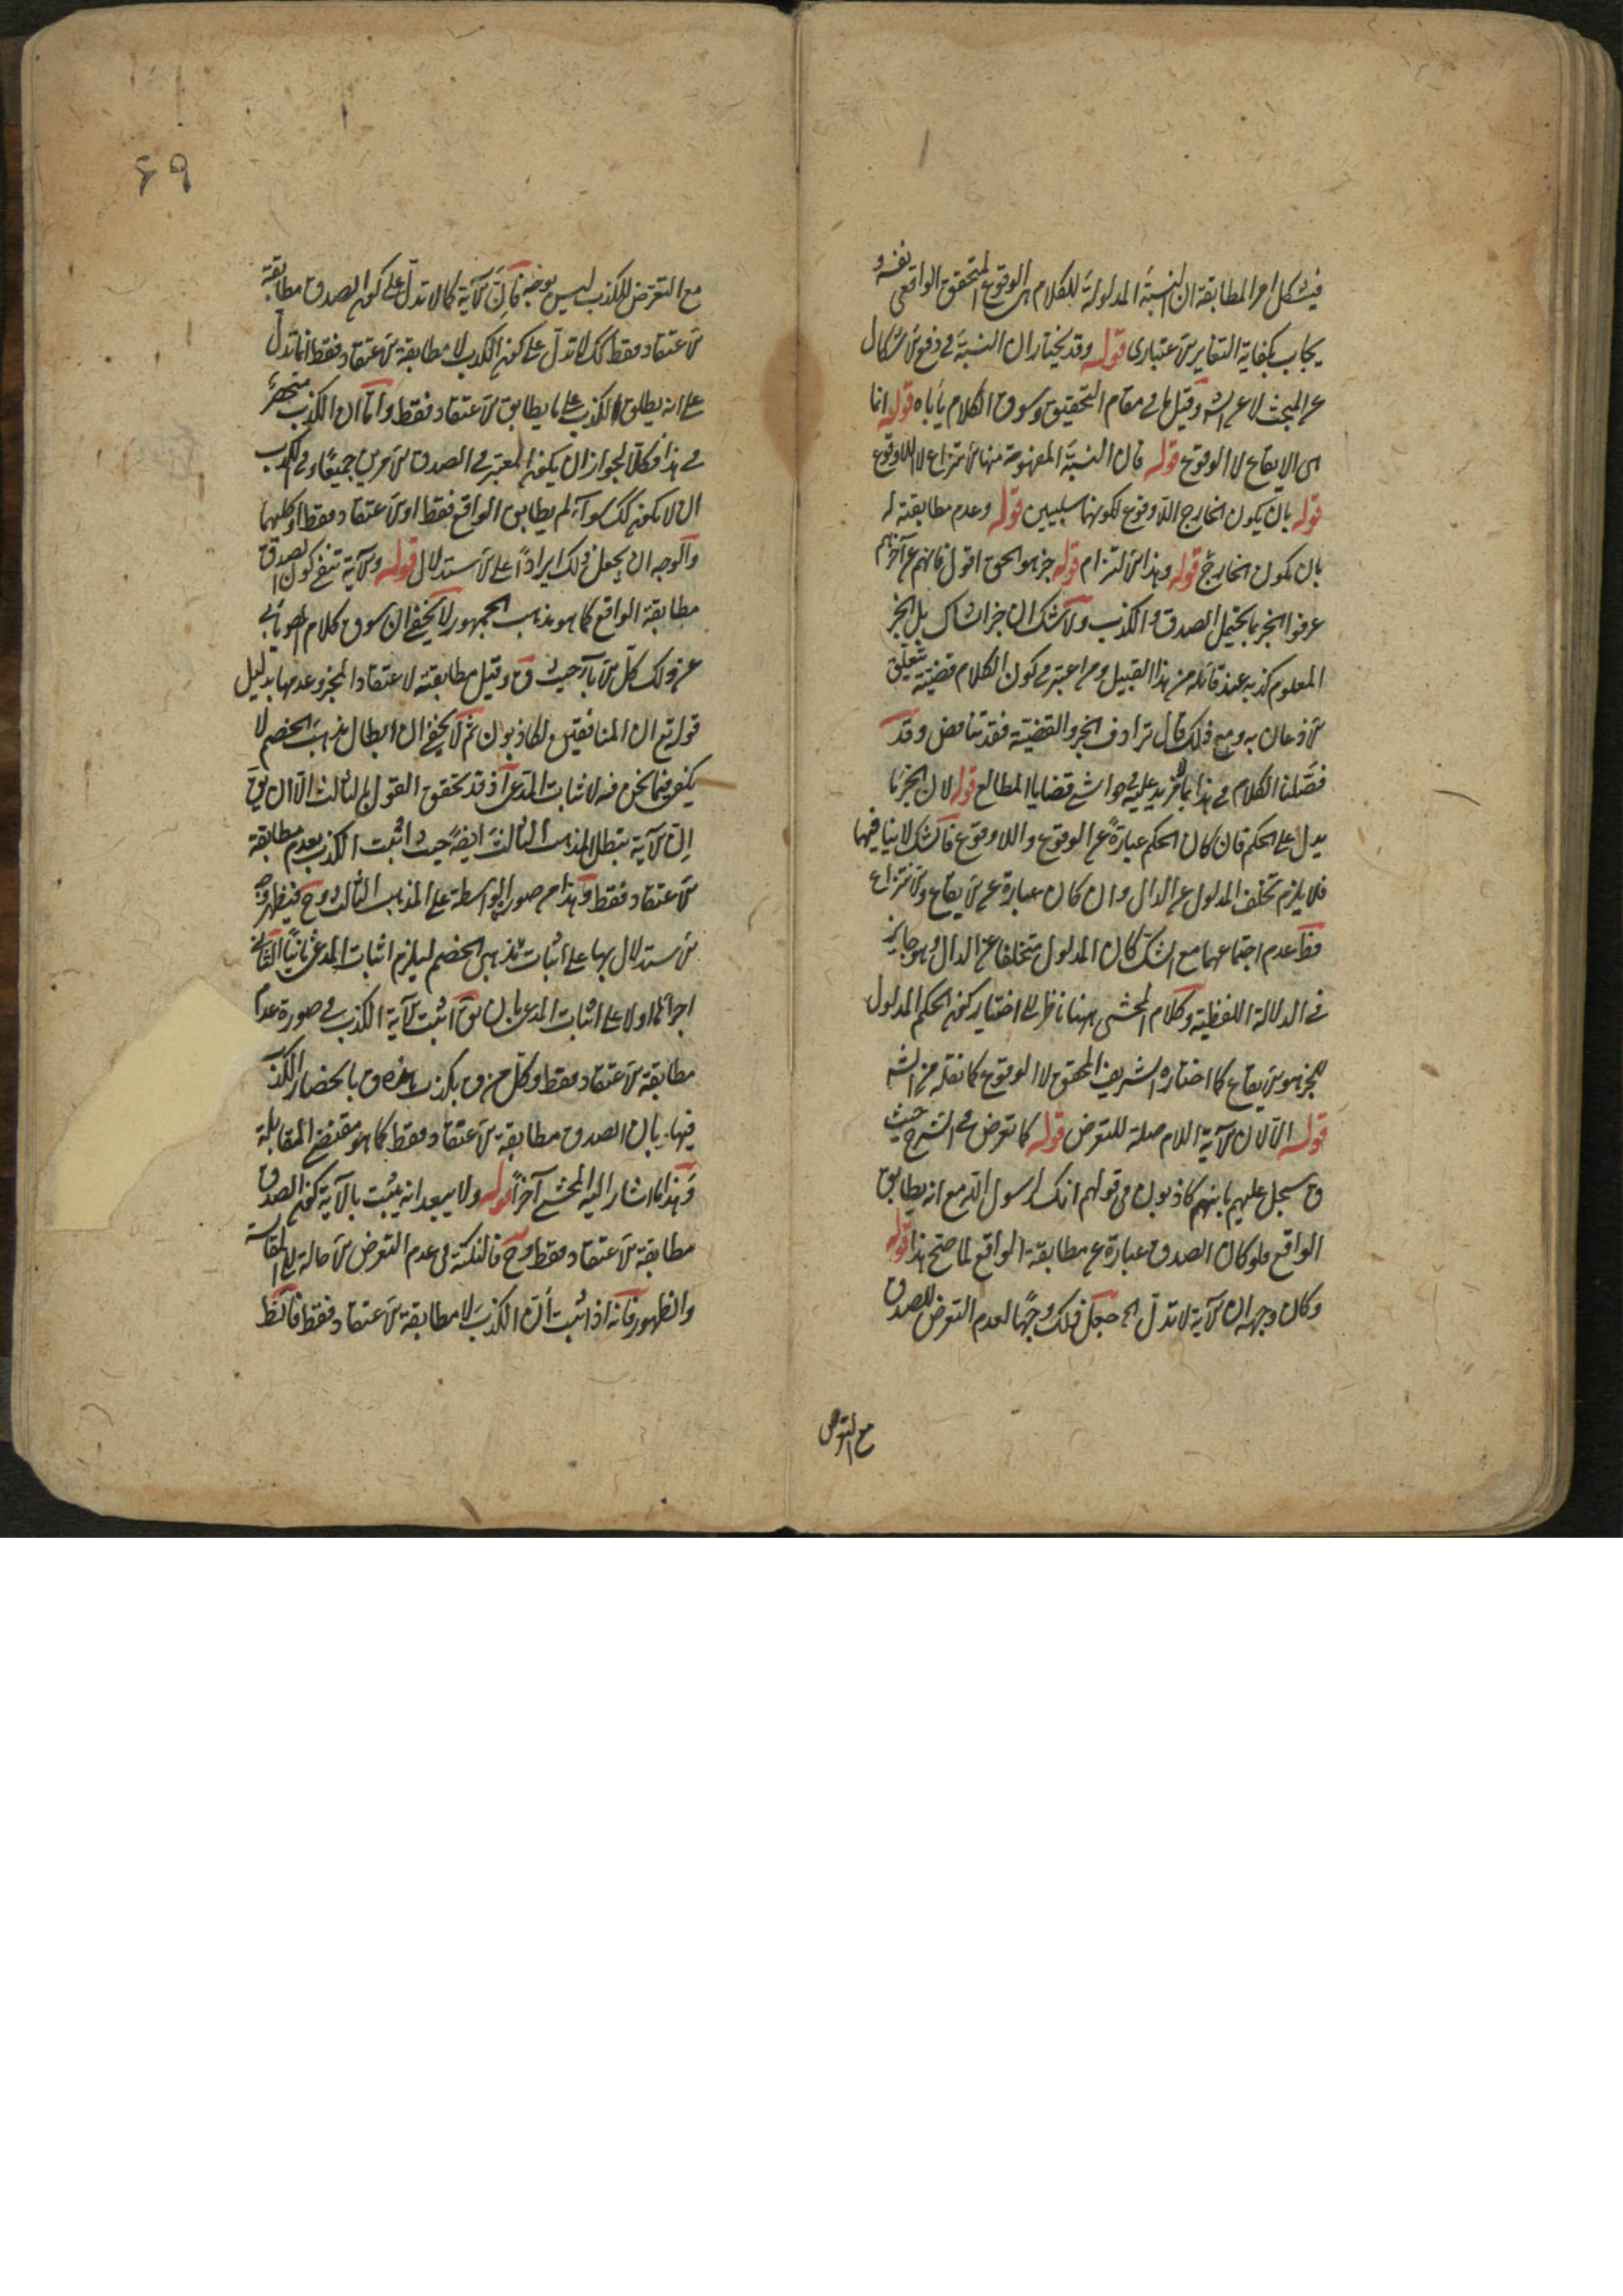 فيشكل امر المطابقة ان النسبة المدلولة للكلام هى الوقوع المتحقق الواقعى نفسه و
يجاب بكفاية التغاير الاعتبارى قوله وقد يختار ان النسبة فى دفع الاشكال
عن المبحث لا عن الش وقيل ما فى مقام التحقيق وسوق الكلام يأباه قوله انا
هى الايقاع لا الوقوع قوله فان النسبة المفهومة منها الانتزاع لا اللاوقوع
قوله بان يكون الخارج اللاوقوع لكونهما سلبيين قوله وعدم مطابقته له
بان يكون الخارج قوله وهذا الالتزام قوله هو الحق اقول فانهم عن آخرهم
عرفوا الخبر بما يحتمل الصدق والكذب ولا شك ان خبر الشاك بل الخبر
المعلوم كذبه عند قائله من هذا القبيل ومن اعتبر فى كون الكلام قضيتة تعلق
الاذعان به ومع ذلك قال ترادف الخبر والقضية فقد تناقض وقد
فصلنا الكلام فى هذا بما لا مزيد عليه فى حواشى قضايا المطالع قوله لان الخبر
يدل على الحكم فان كان الحكم عبارة عن الوقوع واللاوقوع فالشك لا ينافيهما
فلا يلزم تخلف المدلول عن الدال وان كان عبارة عن الايقاع والانتزاع
فظ عدم اجتماعهما مع الشك كان المدلول متخلفا عن الدال وهو جايز
فى الدلالة اللفظية وكلام المحشى ههنا ناظر الى اختيار كون الحكم المدلول
للخبر هو الايقاع كما اختاره الشريف المحقق لا الوقوع كما نقله من الش
قوله الآلان الآية اللام صلة للتعرض قوله كما تعرض فى الشرح حيث
ق سجل عليهم بانهم كاذبون فى قولهم انك لرسول الله مع انه يطابق
الواقع فلو كان الصدق عبارة عن مطابقة الواقع لما صح هذا قوله
وكان وجهه ان الآية لا تدل الخ جعل ذلك وجها لعدم التعرض للصدق
مع التعرض
٦٩
مع التعرض للكذب ليس بوجه فان الآية كما لا تدل على كون الصدق مطابقة
الاعتقاد فقط كك لا تدل على كون الكذب لا مطابقة الاعتقاد فقط انما تدل
على انه يطلق الكذب على ما يطابق الاعتقاد فقط واما ان الكذب منحصر
فى هذا فكلا لجواز ان يكون المعتبر فى الصدق الامرين جميعا وفى الكذب
ان لا يكون كك سواء لم يطابق الواقع فقط او الاعتقاد فقط او كليهما
والوجه ان يجعل ذلك ايرادا على الاستدلال قوله والآية تنفى كون الصدق
مطابقة الواقع كما هو مذهب الجمهور لا يخفى ان سوق كلام المص يأبى
عن ذلك كل الاباء حيث ق وقيل مطابقته لاعتقاد المخبر وعدمها بدليل
قوله تع ان المنافقين لكاذبون ثم لا يخفى ان ابطال مذهب الخصم لا
يكفى فيما نحن فيه لاثبات المدعى اذ قد تحقق القول بالثالث الا ان يق
ان الآية تبطل المذهب الثالث ايضا حيث اثبت الكذب بعدم مطابقة
الاعتقاد فقط وهذا من صور الواسطة على المذهب الثالث وح فيظهر وجه
الاستدلال بها على اثبات مذهب الخصم ليلزم اثبات المدعى ثانيا الثانى
اجرائها اولا على اثبات المدعى بان يق اثبت الآية الكذب فى صورة عدم
مطابقة الاعتقاد فقط وكل من ق بكذب هذه ق بانحصار الكذب
فيها بان الصدق مطابقة الاعتقاد فقط كما هو مقتضى المقابلة
وهذا ما اشار اليه المحشى آخرا قوله ولا يبعد انه يثبت بالآية كون الصدق
مطابقة الاعتقاد فقط وح فالنكتة فى عدم التعرض الاحالة على المقايسة
والظهور فانه اذا ثبت ان الكذب لا مطابقة الاعتقاد فقط فالظ